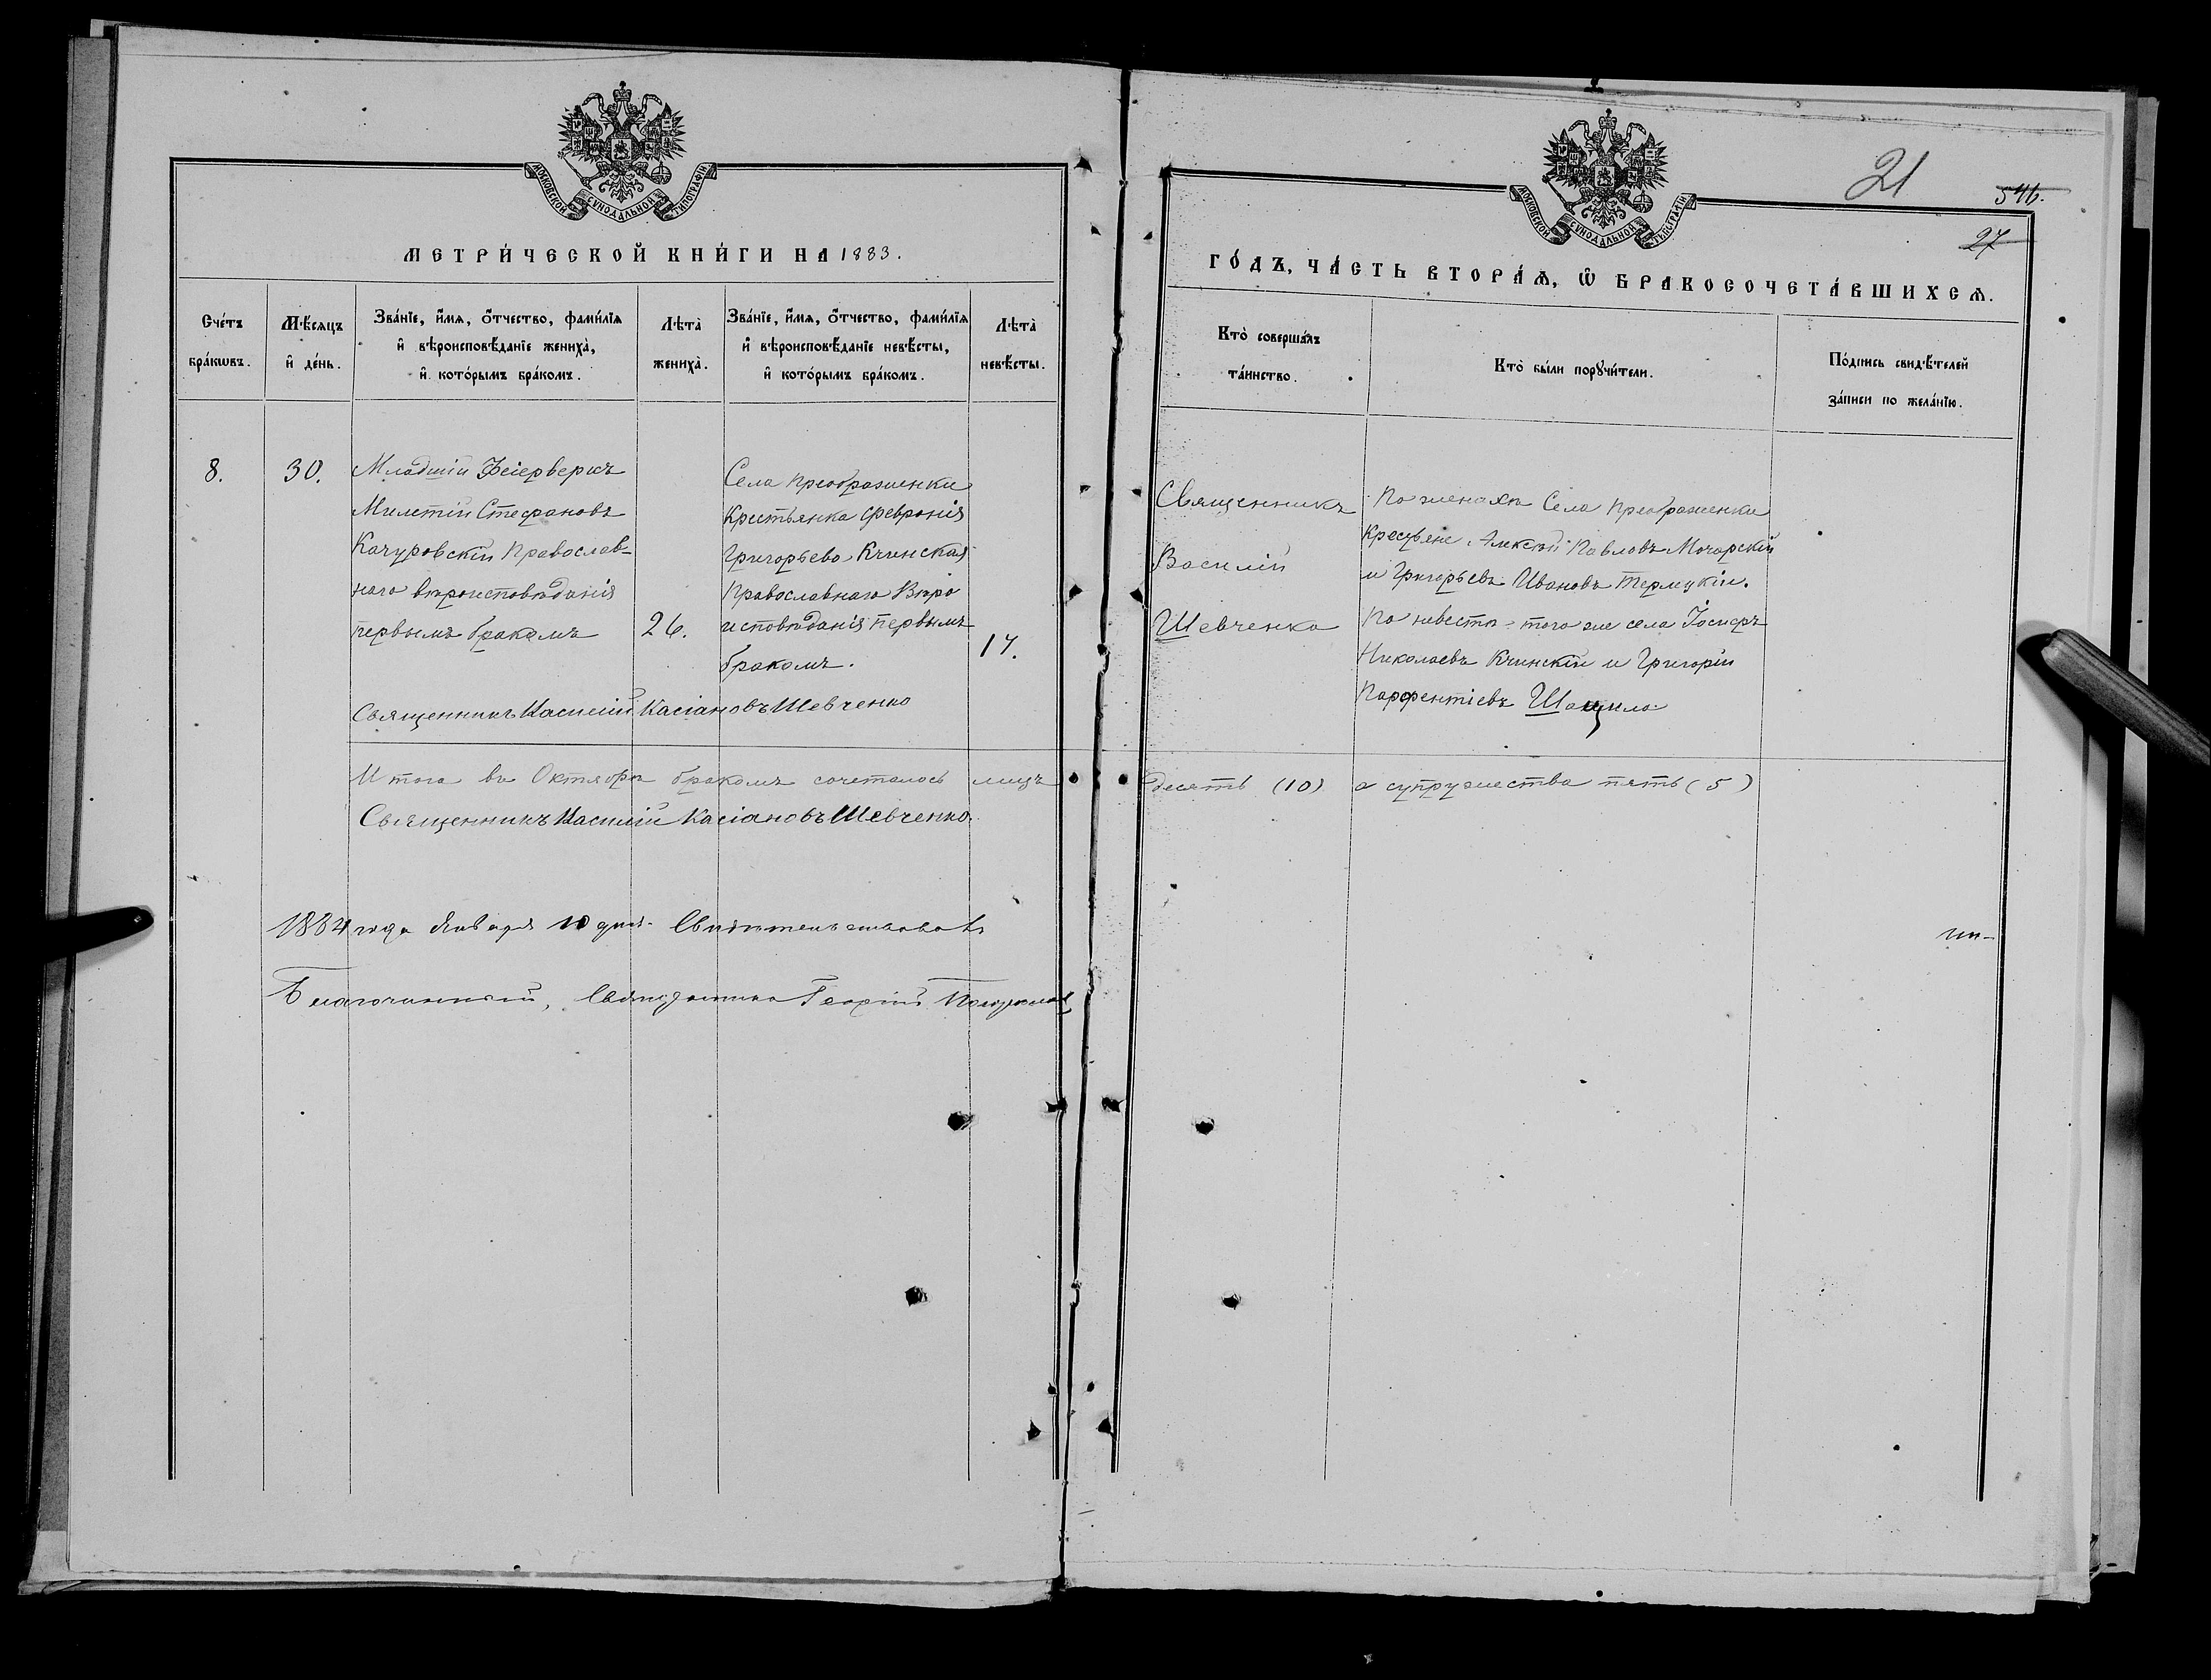 МОСКОВСКОЙ СѴНОДАЛЬНОЙ ТИПОГРАФІИ
МЕТРИ́ЧЕСКОЙ КНИ́ГИ НА 1883.
Сче́тъ бра́кѡвъ.
Мѣ́сяцъ и҆ де́нь.
Зва́нїе, и҆́мѧ, ѻ҆́тчество, фами́лїѧ
и҆ вѣроисповѣ́данїе жениха̀,
и҆ кото́рымъ бра́комъ.
Лѣта̀ жениха̀.
Зва́нїе, и҆́мѧ, ѻ҆́тчество, фами́лїѧ
и҆ вѣроисповѣ́данїе невѣ́сты,
и҆ кото́рымъ бра́комъ.
Лѣта̀ невѣ́сты.
8.
30.
Младшій Фейерверкъ
Милетій Стефановъ
Качуровскій Православ-
наго вѣроисповѣданія
первымъ бракомъ
26.
Села Преображенки
Крестьянка Февронія
Григорьева Кчинская
Православнаго Вѣро
исповѣданія первымъ
бракомъ.
17.
Священникъ Василій Касіановъ Шевченко
Итого въ Октябрѣ бракомъ сочеталось лицъ
Священникъ Василій Касіановъ Шевченко.
1884 года Января 10 дня. Свидѣтельствовалъ
Благочинный, Священникъ Георгій
МОСКОВСКОЙ СѴНОДАЛЬНОЙ ТИПОГРАФІИ
21
546.
27
ГО́ДЪ, ЧА́СТЬ ВТОРА́Ѧ, Ѽ БРАКОСОЧЕТА́ВШИХСѦ.
Кто̀ соверша́лъ
та́инство.
Кто̀ бы́ли порꙋчи́тели.
По́дпись свидѣ́телей
за́писи по жела́нїю.
Священникъ
Василій
Шевченко
По женихѣ Села Преображенки
Кресцьяне Алексѣй Павловъ Мочарскій
и Григорьевъ Ивановъ Термукій.
По невестѣ - того же села Іосифъ
Николаевъ Кчинскій и Григорій
Парфентіевъ Шацило
десять (10) а супружества пять (5)